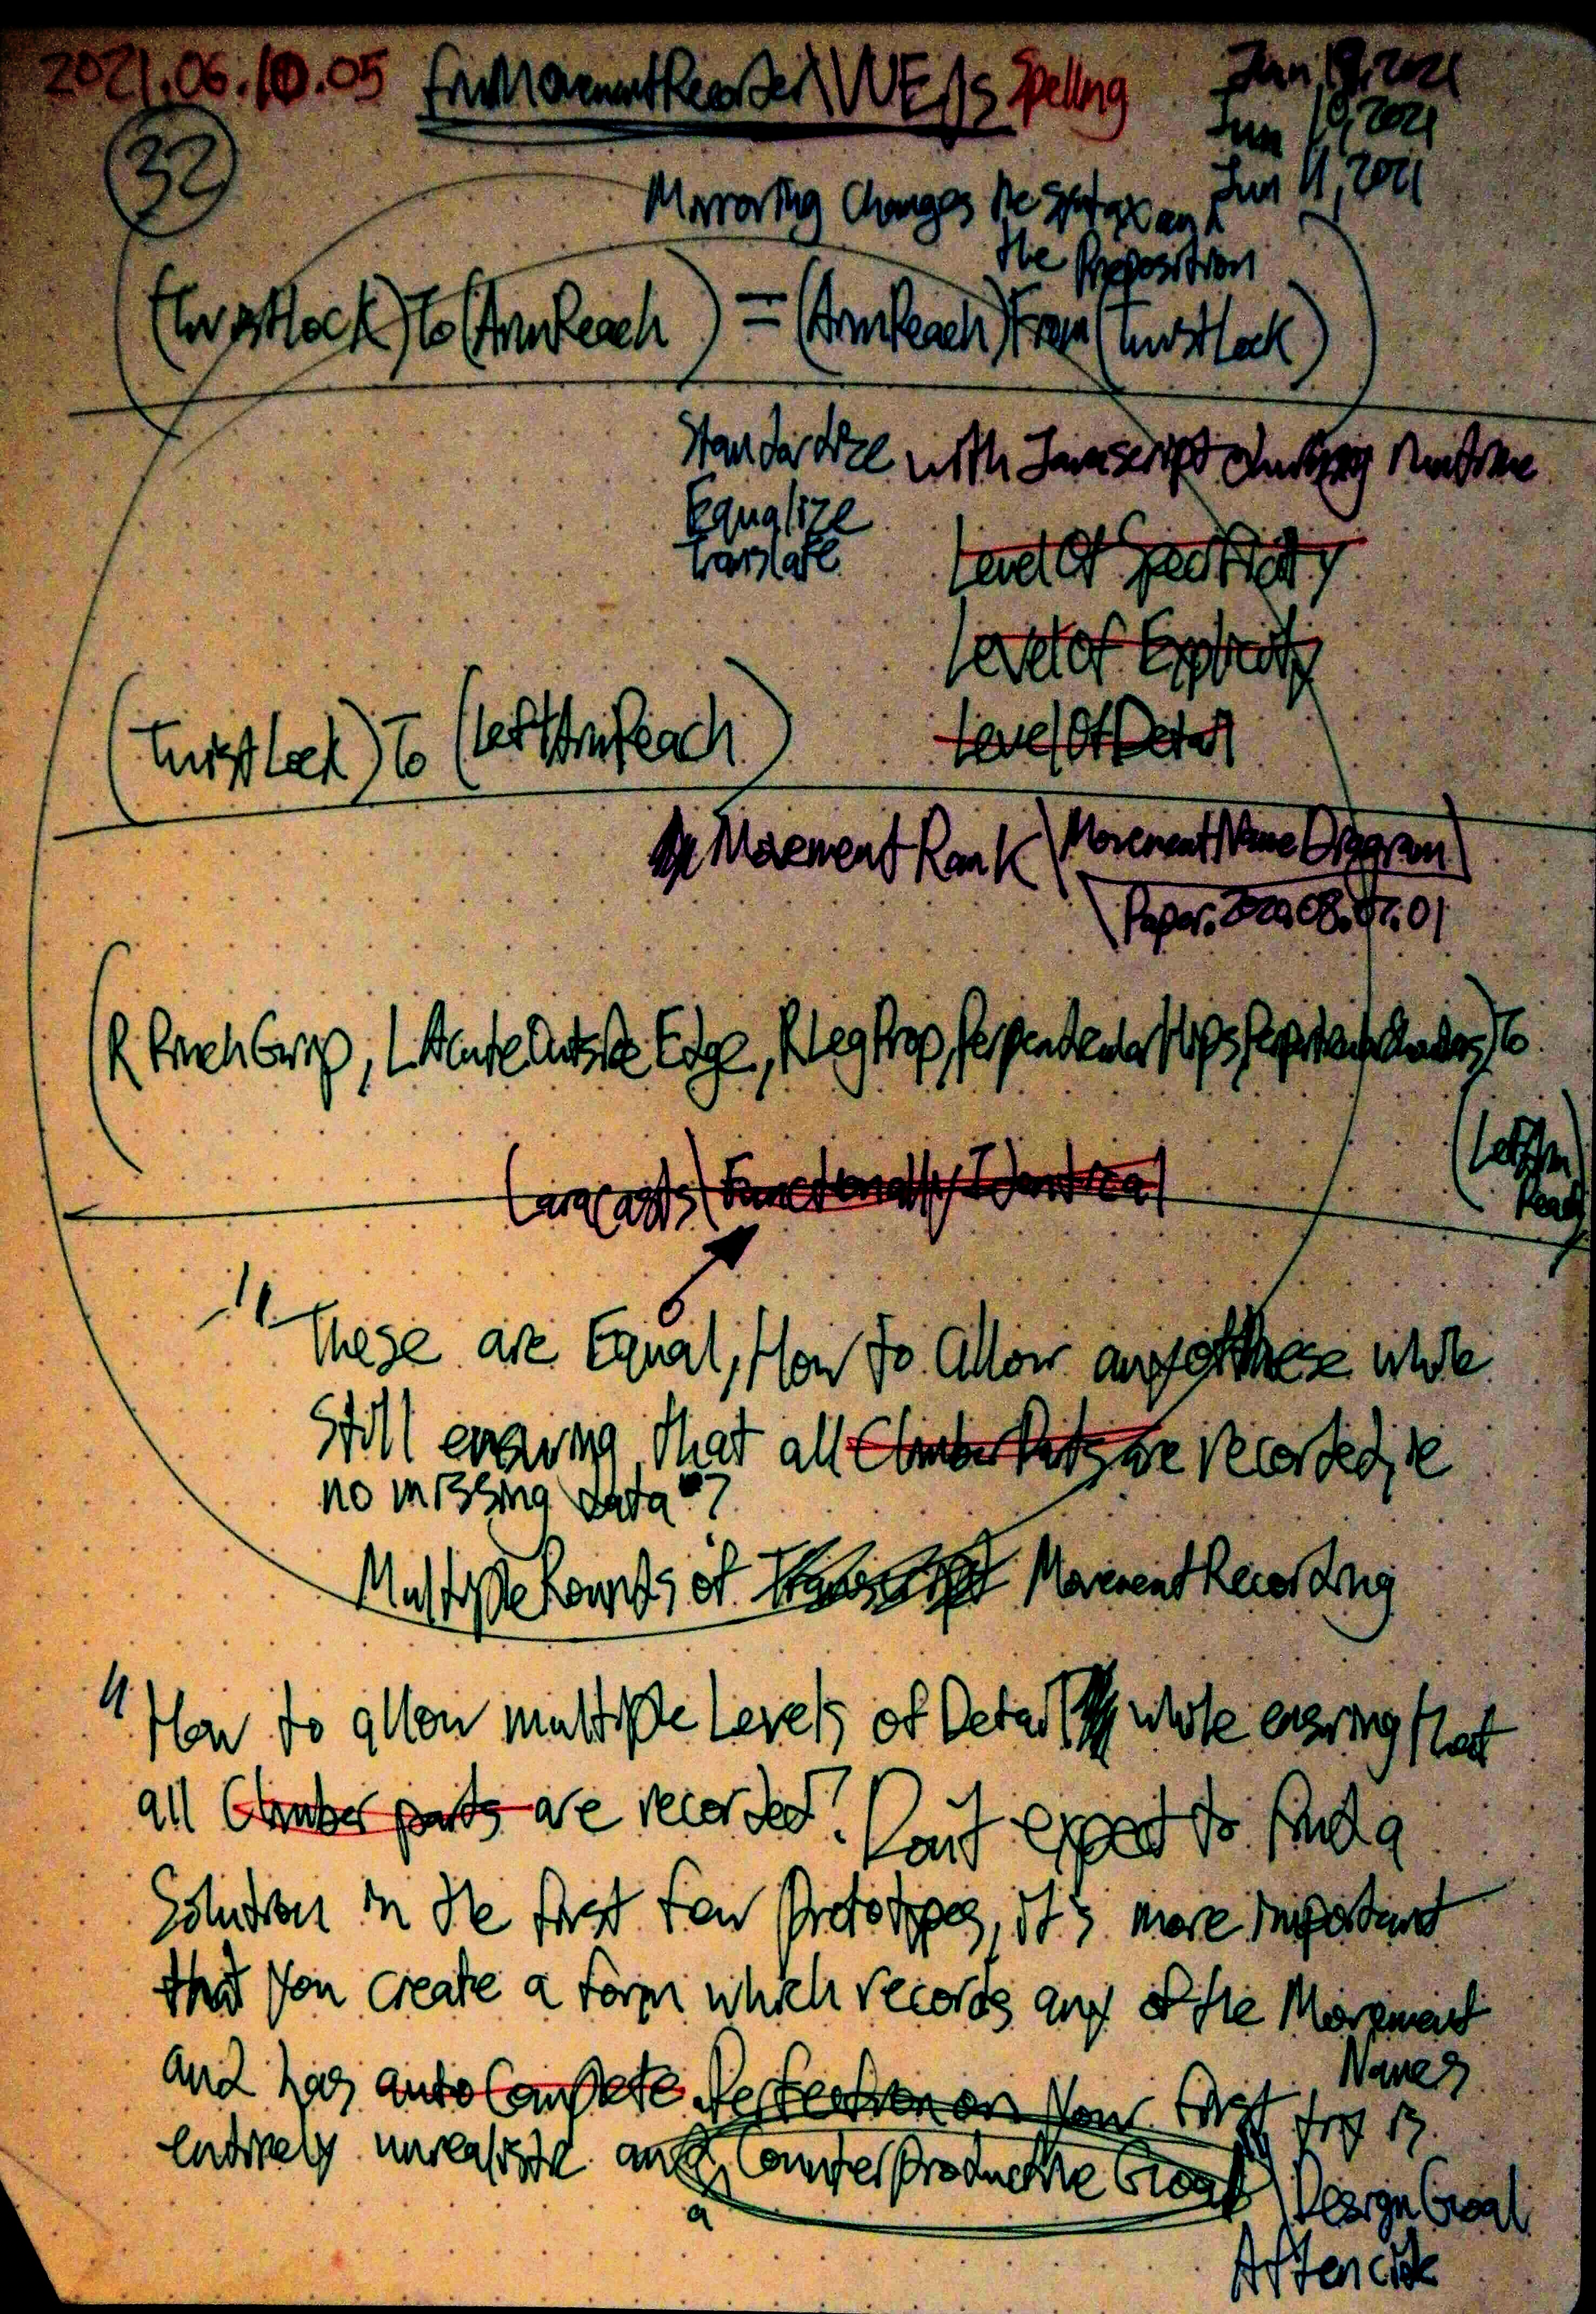 2021.06.10.05 frmMovementRecorder\WEJS Spelling
Jun 10, 2021
Jun 11, 2021
32
Mirroring Changes the Syntax and
the Preposition
(TwistLock)To(ArmReach) = (ArmReach)From(TwistLock)
Standardize with Javascript during runtime
Equalize
Translate
Level Of Specificity
Level Of Explicity
Level Of Detail
(TwistLock)To(LeftArmReach)
MovementRank\MovementNameDiagram
\Paper.2020.08.07.01
(R PinchGrip, LAcuteOutsideEdge, RLegProp, PerpendicularHips, PerpendicularShoulders)To
(LeftArm
Reach)
Laracasts\Functionally Identical
"These are Equal, How to allow any of these while
Still ensuring that all Climber Parts are recorded, ie
no missing data"?
Multiple Rounds of Transcript MovementRecording
"How to allow multiple Levels of Detail while ensuring that
all Climber parts are recorded? Don't expect to find a
Solution in the first few prototypes, it's more important
that you create a form which records any of the Movement
Names
and has autoComplete. Perfection on Your first try is
entirely unrealistic and a CounterProductive Goal
\DesignGoal